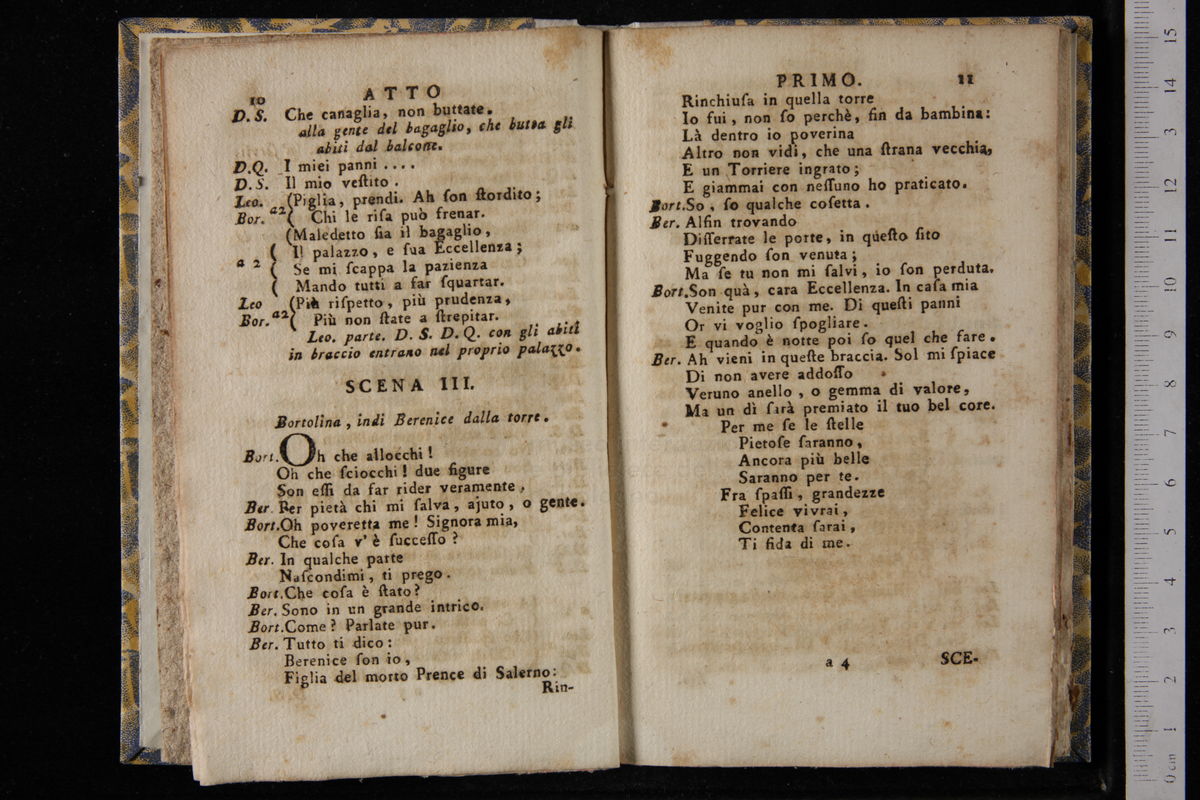 10 ATTO
D. S. Che canaglia, non buttate.
alla gente del bagaglio, che butta gli
abiti dal balcone.
D.Q. I miei panni ....
D. S. Il mio veſtito.
Leo. (Piglia, prendi. Ah ſon ſtordito;
Bor. a2 ( Chi le riſa può frenar.
(Maledetto ſia il bagaglio,
( Il palazzo, e ſua Eccellenza;
a 2 ( Se mi ſcappa la pazienza
( Mando tutti a far ſquartar.
Leo (Più riſpetto, più prudenza,
Bor. a2 ( Più non ſtate a ſtrepitar.
Leo. parte. D. S. D. Q. con gli abiti
in braccio entrano nel proprio palazzo.
SCENA III.
Bortolina, indi Berenice dalla torre.
Bort. Oh che allocchi!
Oh che ſciocchi! due figure
Son eſſi da far rider veramente.
Ber. Per pietà chi mi ſalva, ajuto, o gente.
Bort. Oh poveretta me! Signora mia,
Che coſa v' è ſucceſſo?
Ber. In qualche parte
Naſcondimi, ti prego.
Bort. Che coſa è ſtato?
Ber. Sono in un grande intrico.
Bort. Come? Parlate pur.
Ber. Tutto ti dico:
Berenice ſon io,
Figlia del morto Prence di Salerno:
Rin-
PRIMO. 11
Rinchiuſa in quella torre
Io fui, non ſo perchè, fin da bambina:
Là dentro io poverina
Altro non vidi, che una ſtrana vecchia,
E un Torriere ingrato;
E giammai con neſſuno ho praticato.
Bort. So, ſo qualche coſetta.
Ber. Alfin trovando
Diſſerrate le porte, in queſto ſito
Fuggendo ſon venuta;
Ma ſe tu non mi ſalvi, io ſon perduta.
Bort. Son quà, cara Eccellenza. In caſa mia
Venite pur con me. Di queſti panni
Or vi voglio ſpogliare.
E quando è notte poi ſo quel che fare.
Ber. Ah vieni in queſte braccia. Sol mi ſpiace
Di non avere addoſſo
Veruno anello, o gemma di valore,
Ma un dì ſarà premiato il tuo bel core.
Per me ſe le ſtelle
Pietoſe ſaranno,
Ancora più belle
Saranno per te.
Fra ſpaſſi, grandezze
Felice vivrai,
Contenta ſarai,
Ti fida di me.
a 4 SCE-
0 cm 1 2 3 4 5 6 7 8 9 10 11 12 13 14 15